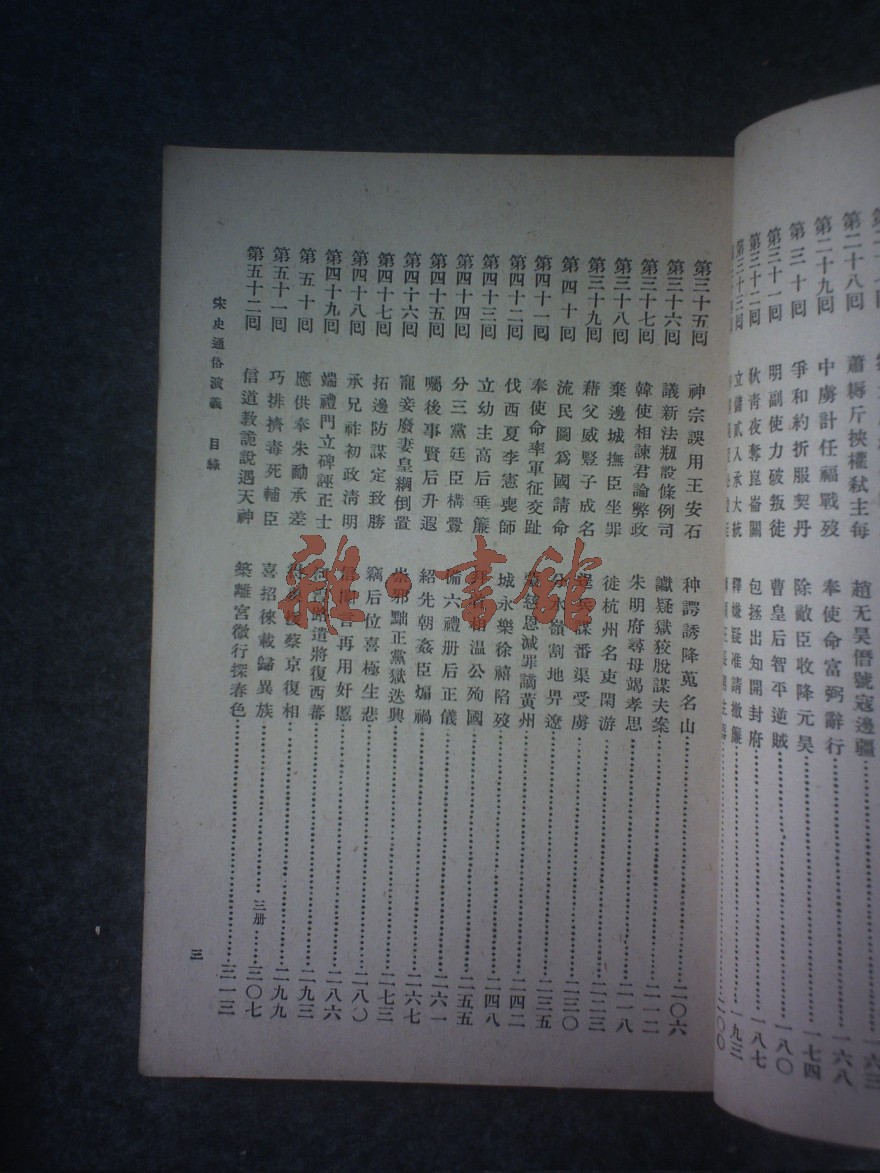 第二十八回 蕭耨斤挾權弒主母 趙元昊僭號寇邊疆 一六三
第二十九回 中虜計任福戰歿 奉使命富弼辭行 一六八
第三十回 爭和約折服契丹 除敵臣收降元昊 一七四
第三十一回 明副使力破叛徒 曹皇后智平逆賊 一八〇
第三十二回 狄青夜奪崑崙關 包拯出知開封府 一八七
第三十三回 立儲貳入承大統 釋嫌疑准請撤簾 一九三
二〇〇
第三十五回 神宗誤用王安石 种諤誘降嵬名山 二〇六
第三十六回 議新法創設條例司 讞疑獄狡脫謀夫案 二一二
第三十七回 韓使相諫君論弊政 朱明府尋母竭孝思 二一八
第三十八回 棄邊城撫臣坐罪 徙杭州名吏閑游 二二三
第三十九回 藉父威豎子成名 兵謀番渠受虜 二三〇
第四十回 流民圖爲國請命 分水嶺割地畀遼 二三五
第四十一回 奉使命率軍征交趾 慈恩減罪謫黃州 二四二
第四十二回 伐西夏李憲喪師 城永樂徐禧陷歿 二四八
第四十三回 立幼主高后垂簾 相溫公殉國 二五五
第四十四回 分三黨廷臣構釁 備六禮册后正儀 二六一
第四十五回 囑後事賢后升遐 紹先朝姦臣煽禍 二六七
第四十六回 寵妾廢妻皇綱倒置 邪黜正黨獄迭興 二七三
第四十七回 拓邊防謀定致勝 竊后位喜極生悲 二八〇
第四十八回 承兄祚初政清明 再用奸慝 二八六
第四十九回 端禮門立碑誣正士 遣將復西蕃 二九三
第五十回 應供奉朱勔承差 蔡京復相 二九九
第五十一回 巧排擠毒死輔臣 喜招徠載歸異族 三册 三〇七
第五十二回 信道敎詭說遇天神 築離宮微行探春色 三一三
宋史通俗演義 目錄 三
雜·書館